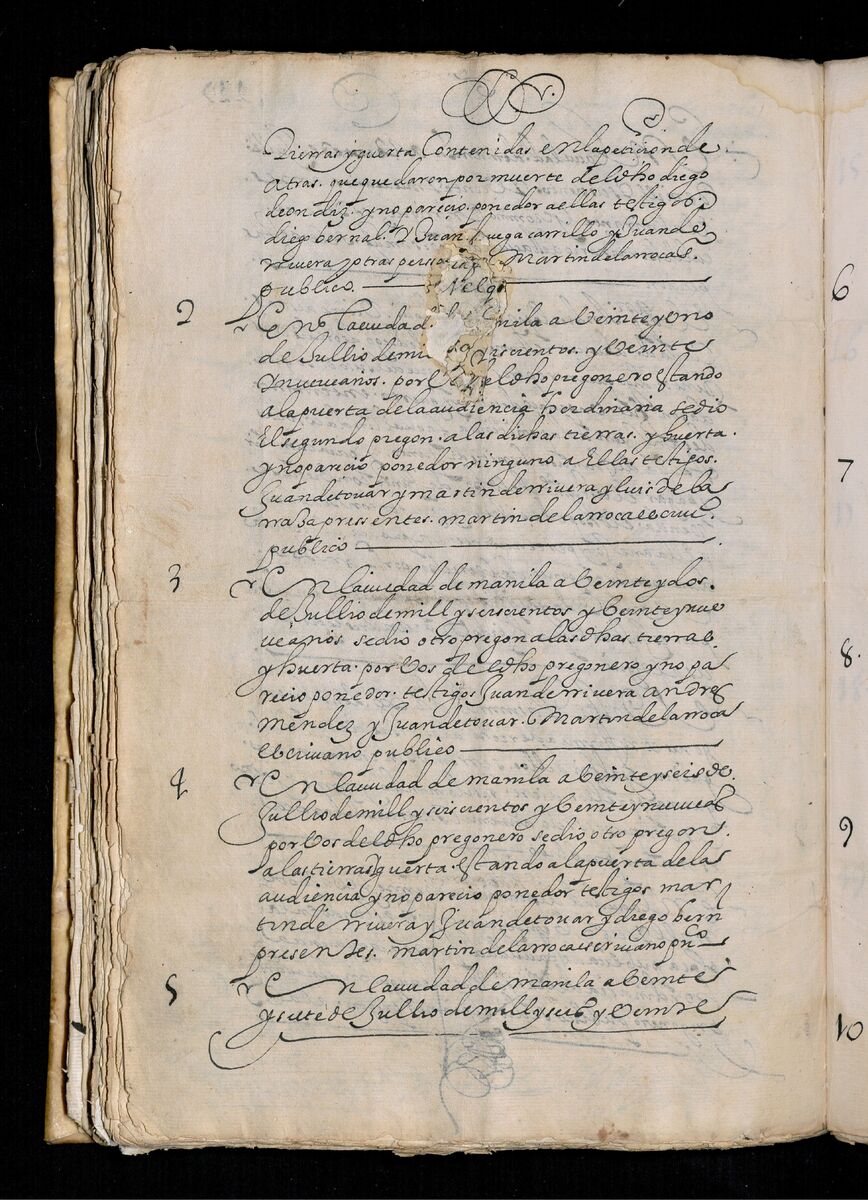 tierras y guerta contenidas en la peticion de
atras. que quedaron por muerte del dho diego
leon diz. y no parecio. ponedor a ellas testigos.
diego bernal. y Juan vega carrillo y Juan de
rrivera y otras personas Martin de la rroca es.
publico
2 En la ciudad de manila a beinte y uno
de Jullio de mil y seiscientos. y beinte
y nueve años. por del dho pregonero estando
a la puerta de la audiencia hordinaria se dio
el segundo pregon. a las dichas tierras. y huerta.
y no parecio ponedor ninguno a ellas testigos.
Juan de tovar y martin de rrivera y luis de ba
rraza pressentes. martin de la rroca escriv.
publico
3 En la ciudad de manila a beinte y dos.
de Jullio de mill y seiscientos y beinte y nue
ve años se dio otro pregon a las dhas tierras
y huerta. por vos del dho pregonero y no pa
recio ponedor. testigos Juan de rrivera andres
mendez y Juan de tovar. Martin de la rroca
escrivano publico
4 En la ciudad de manila a beinte y seis de.
Jullio de mill y seiscientos y beinte y nueve as
por vos del dho pregonero se dio otro pregon.
a las tierras y guerta. estando a la puerta de la
audiencia y no parecio ponedor testigos mar
tin de rrivera y Juan de tovar y diego bern
presentes. martin de la rroca escrivano puco
5 En la ciudad de manila a beinte
y siete de Jullio de mill y seisos y beinte
6
7
8.
9
10